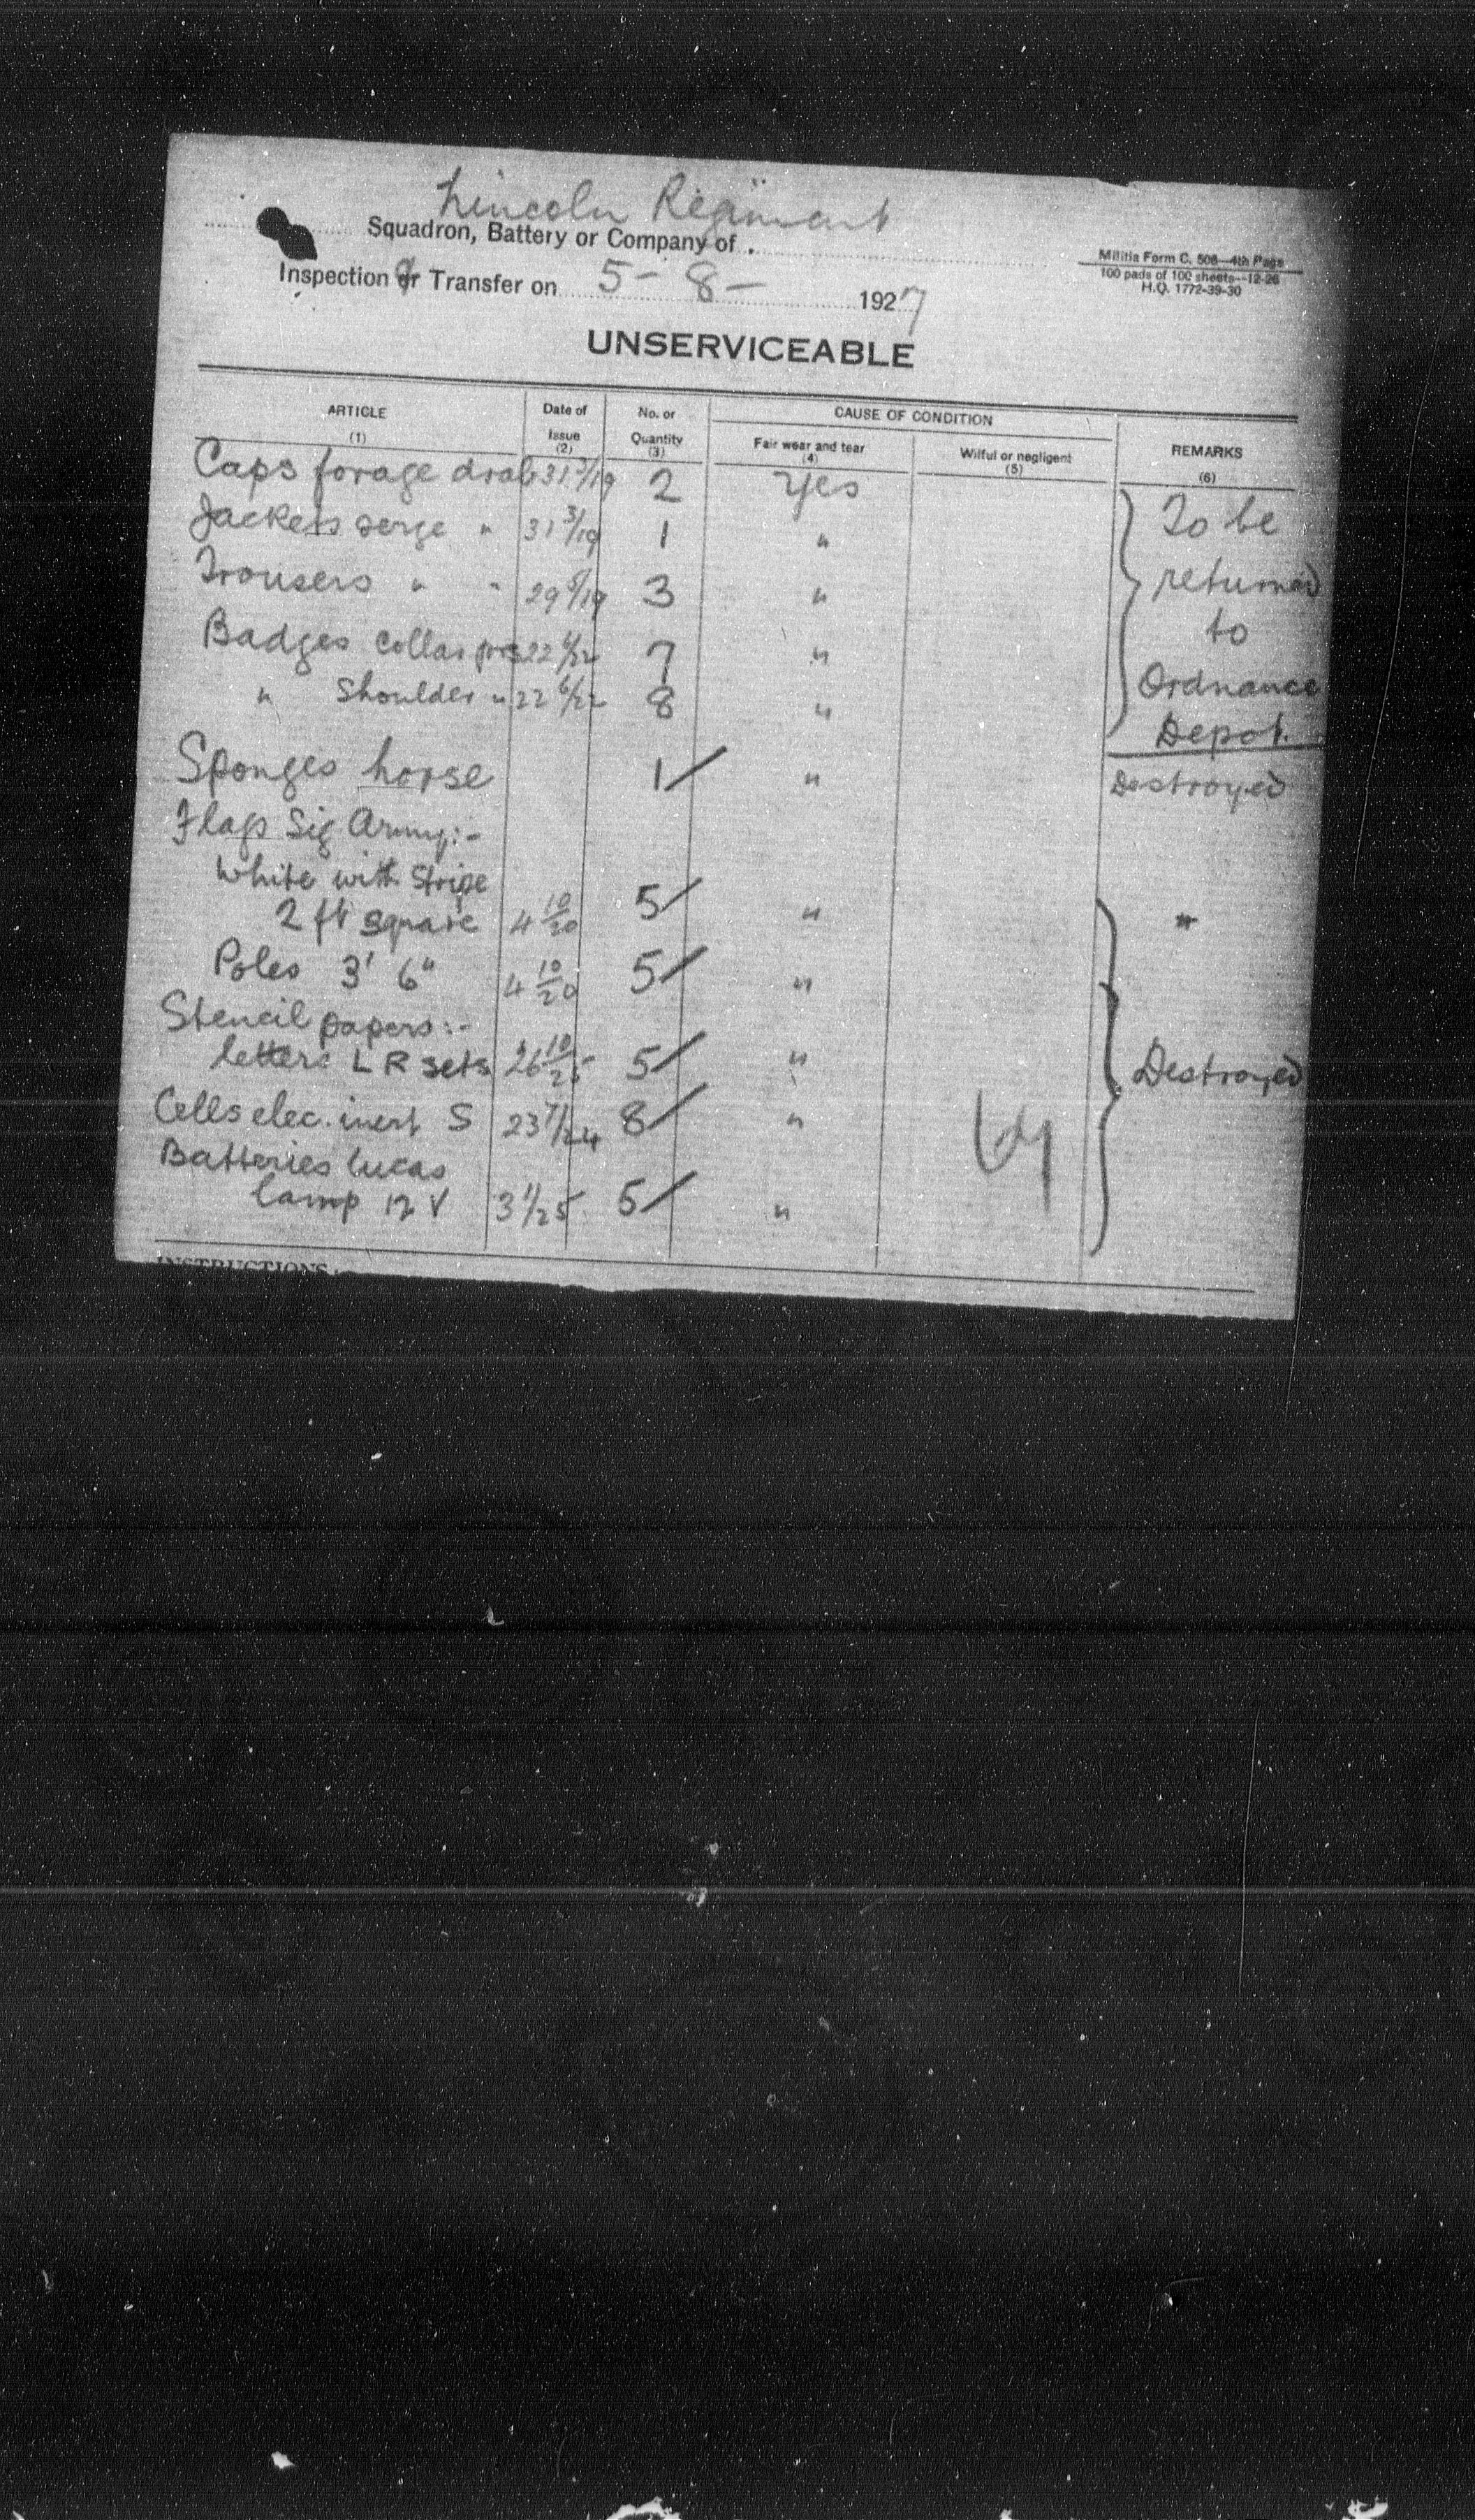 Lincoln Regiment
Squadron, Battery or Company of .
Militia Form C. 508—4th Page
100 pads of 100 sheets—12-26
H.Q. 1772-39-30
Inspection or Transfer on 5 - 8 - 1927
UNSERVICEABLE
ARTICLE (1) Date of Issue (2) No. or Quantity (3) CAUSE OF CONDITION REMARKS (6)
Fair wear and tear (4) Wilful or negligent (5)
Caps forage drab 31 3/19 2 Yes
Jackets serge " 31 3/19 1 " To be
Trousers " " 29 8/19 3 " returned
Badges collar prs 22 6/22 7 " to
" Shoulder " 22 6/22 8 " Ordnance
Depot.
Sponges horse 1/ " Destroyed
Flags Sig Army:-
White with Stripe
2 ft square 4 10/20 5/ " "
Poles 3' 6" 4 10/20 5/ "
Stencil papers:-
letters L R sets 26 10/25 5/ " Destroyed
Cells elec. inert S 23 7/24 8/ "
Batteries lucas
lamp 12 V 3 1/25 5/ "
INSTRUCTIONS